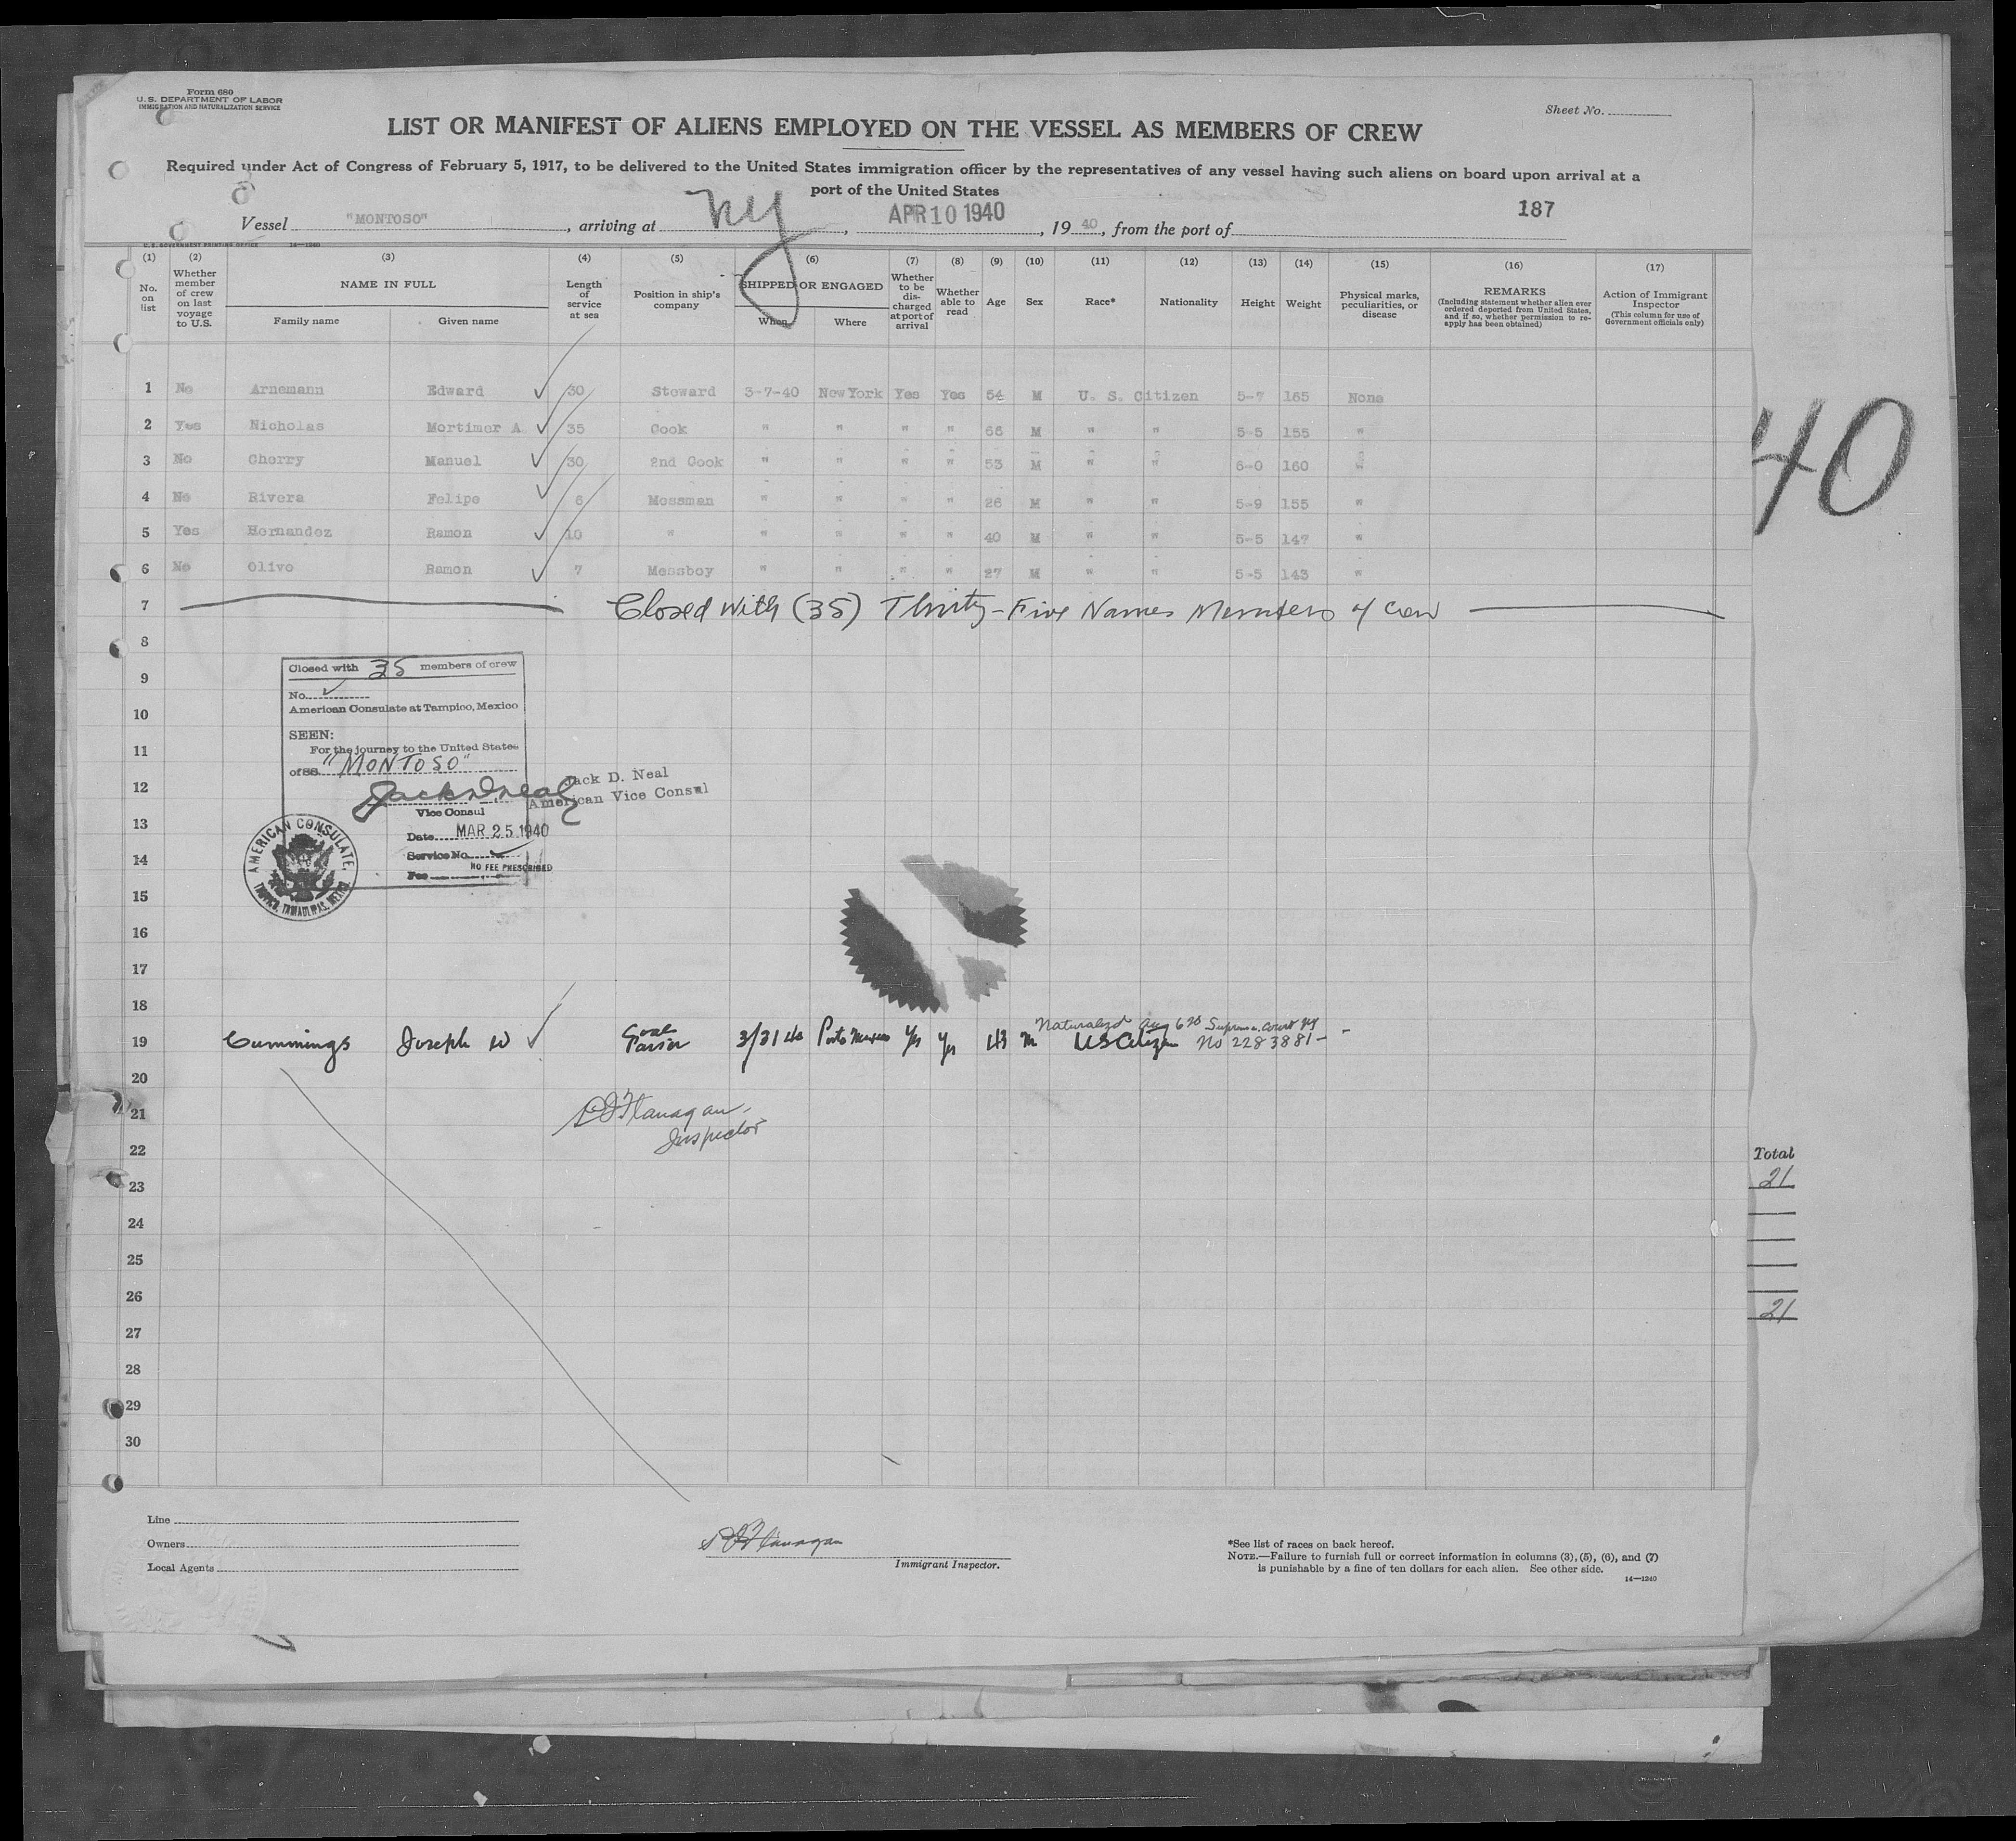 Form 680
U. S. DEPARTMENT OF LABOR
IMMIGRATION AND NATURALIZATION SERVICE
Sheet No.
LIST OR MANIFEST OF ALIENS EMPLOYED ON THE VESSEL AS MEMBERS OF CREW
Required under Act of Congress of February 5, 1917, to be delivered to the United States immigration officer by the representatives of any vessel having such aliens on board upon arrival at a
port of the United States
187
Vessel "MONTOSO", arriving at NY, APR 10 1940, 1940, from the port of
U.S. GOVERNMENT PRINTING OFFICE 14—1240
(1) (2) (3) (4) (5) (6) (7) (8) (9) (10) (11) (12) (13) (14) (15) (16) (17)
No. on list
Whether member of crew on last voyage to U.S.
NAME IN FULL
Family name
Given name
Length of service at sea
Position in ship's company
SHIPPED OR ENGAGED
When
Where
Whether to be discharged at port of arrival
Whether able to read
Age
Sex
Race*
Nationality
Height
Weight
Physical marks, peculiarities, or disease
REMARKS
(Including statement whether alien ever ordered deported from United States, and if so, whether permission to re-apply has been obtained)
Action of Immigrant Inspector
(This column for use of Government officials only)
1 No Arnemann Edward 30 Steward 3-7-40 New York Yes Yes 54 M U. S. Citizen 5-7 165 None
2 Yes Nicholas Mortimer A. 35 Cook " " " " 66 M " " 5-5 155 "
3 No Cherry Manuel 30 2nd Cook " " " " 53 M " " 6-0 160 "
4 No Rivera Felipe 6 Messman " " " " 26 M " " 5-9 155 "
5 Yes Hernandez Ramon 10 " " " " " 40 M " " 5-5 147 "
6 No Olivo Ramon 7 Messboy " " " " 27 M " " 5-5 143 "
7 Closed with (35) Thirty-Five Names Members of Crew
8
9
10
11
12
13
14
15
16
17
18
Closed with 35 members of crew
No.
American Consulate at Tampico, Mexico
SEEN:
For the journey to the United States
of SS. "MONTOSO"
Jack D Neal
Jack D. Neal
American Vice Consul
Vice Consul
Date MAR 25 1940
Service No.
Fee NO FEE PRESCRIBED
AMERICAN CONSULATE,
TAMPICO, TAMAULIPAS, MEXICO
Naturalized Aug 6 Supreme Court NY
19 Cummings Joseph W Coal Passer 3/31 40 Porto Mexico Yes Yes 43 M US Citizen No 2283881
20
21
22
23
24
25
26
27
28
29
30
Flanagan
Inspector
40
Total
21
21
Line
Owners
Local Agents
Flanagan
Immigrant Inspector.
*See list of races on back hereof.
NOTE.—Failure to furnish full or correct information in columns (3), (5), (6), and (7)
is punishable by a fine of ten dollars for each alien. See other side.
14—1240